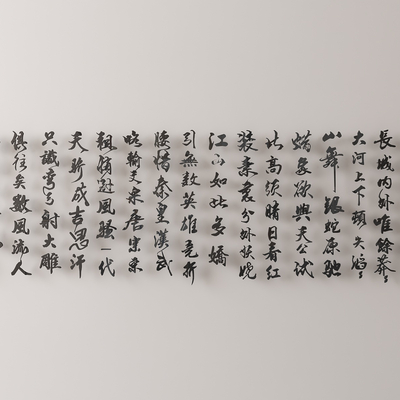 長城内外唯餘莽々
大河上下頓失滔々
山舞銀蛇原馳
蜡象欲與天公試
比高須晴日看紅
裝素裹分外妖嬈
江山如此多嬌
引無數英雄竞折
腰惜秦皇漢武
略輸文采唐宗宋
祖稍遜風騷一代
天驕成吉思汗
只識彎弓射大雕
俱往矣數風流人